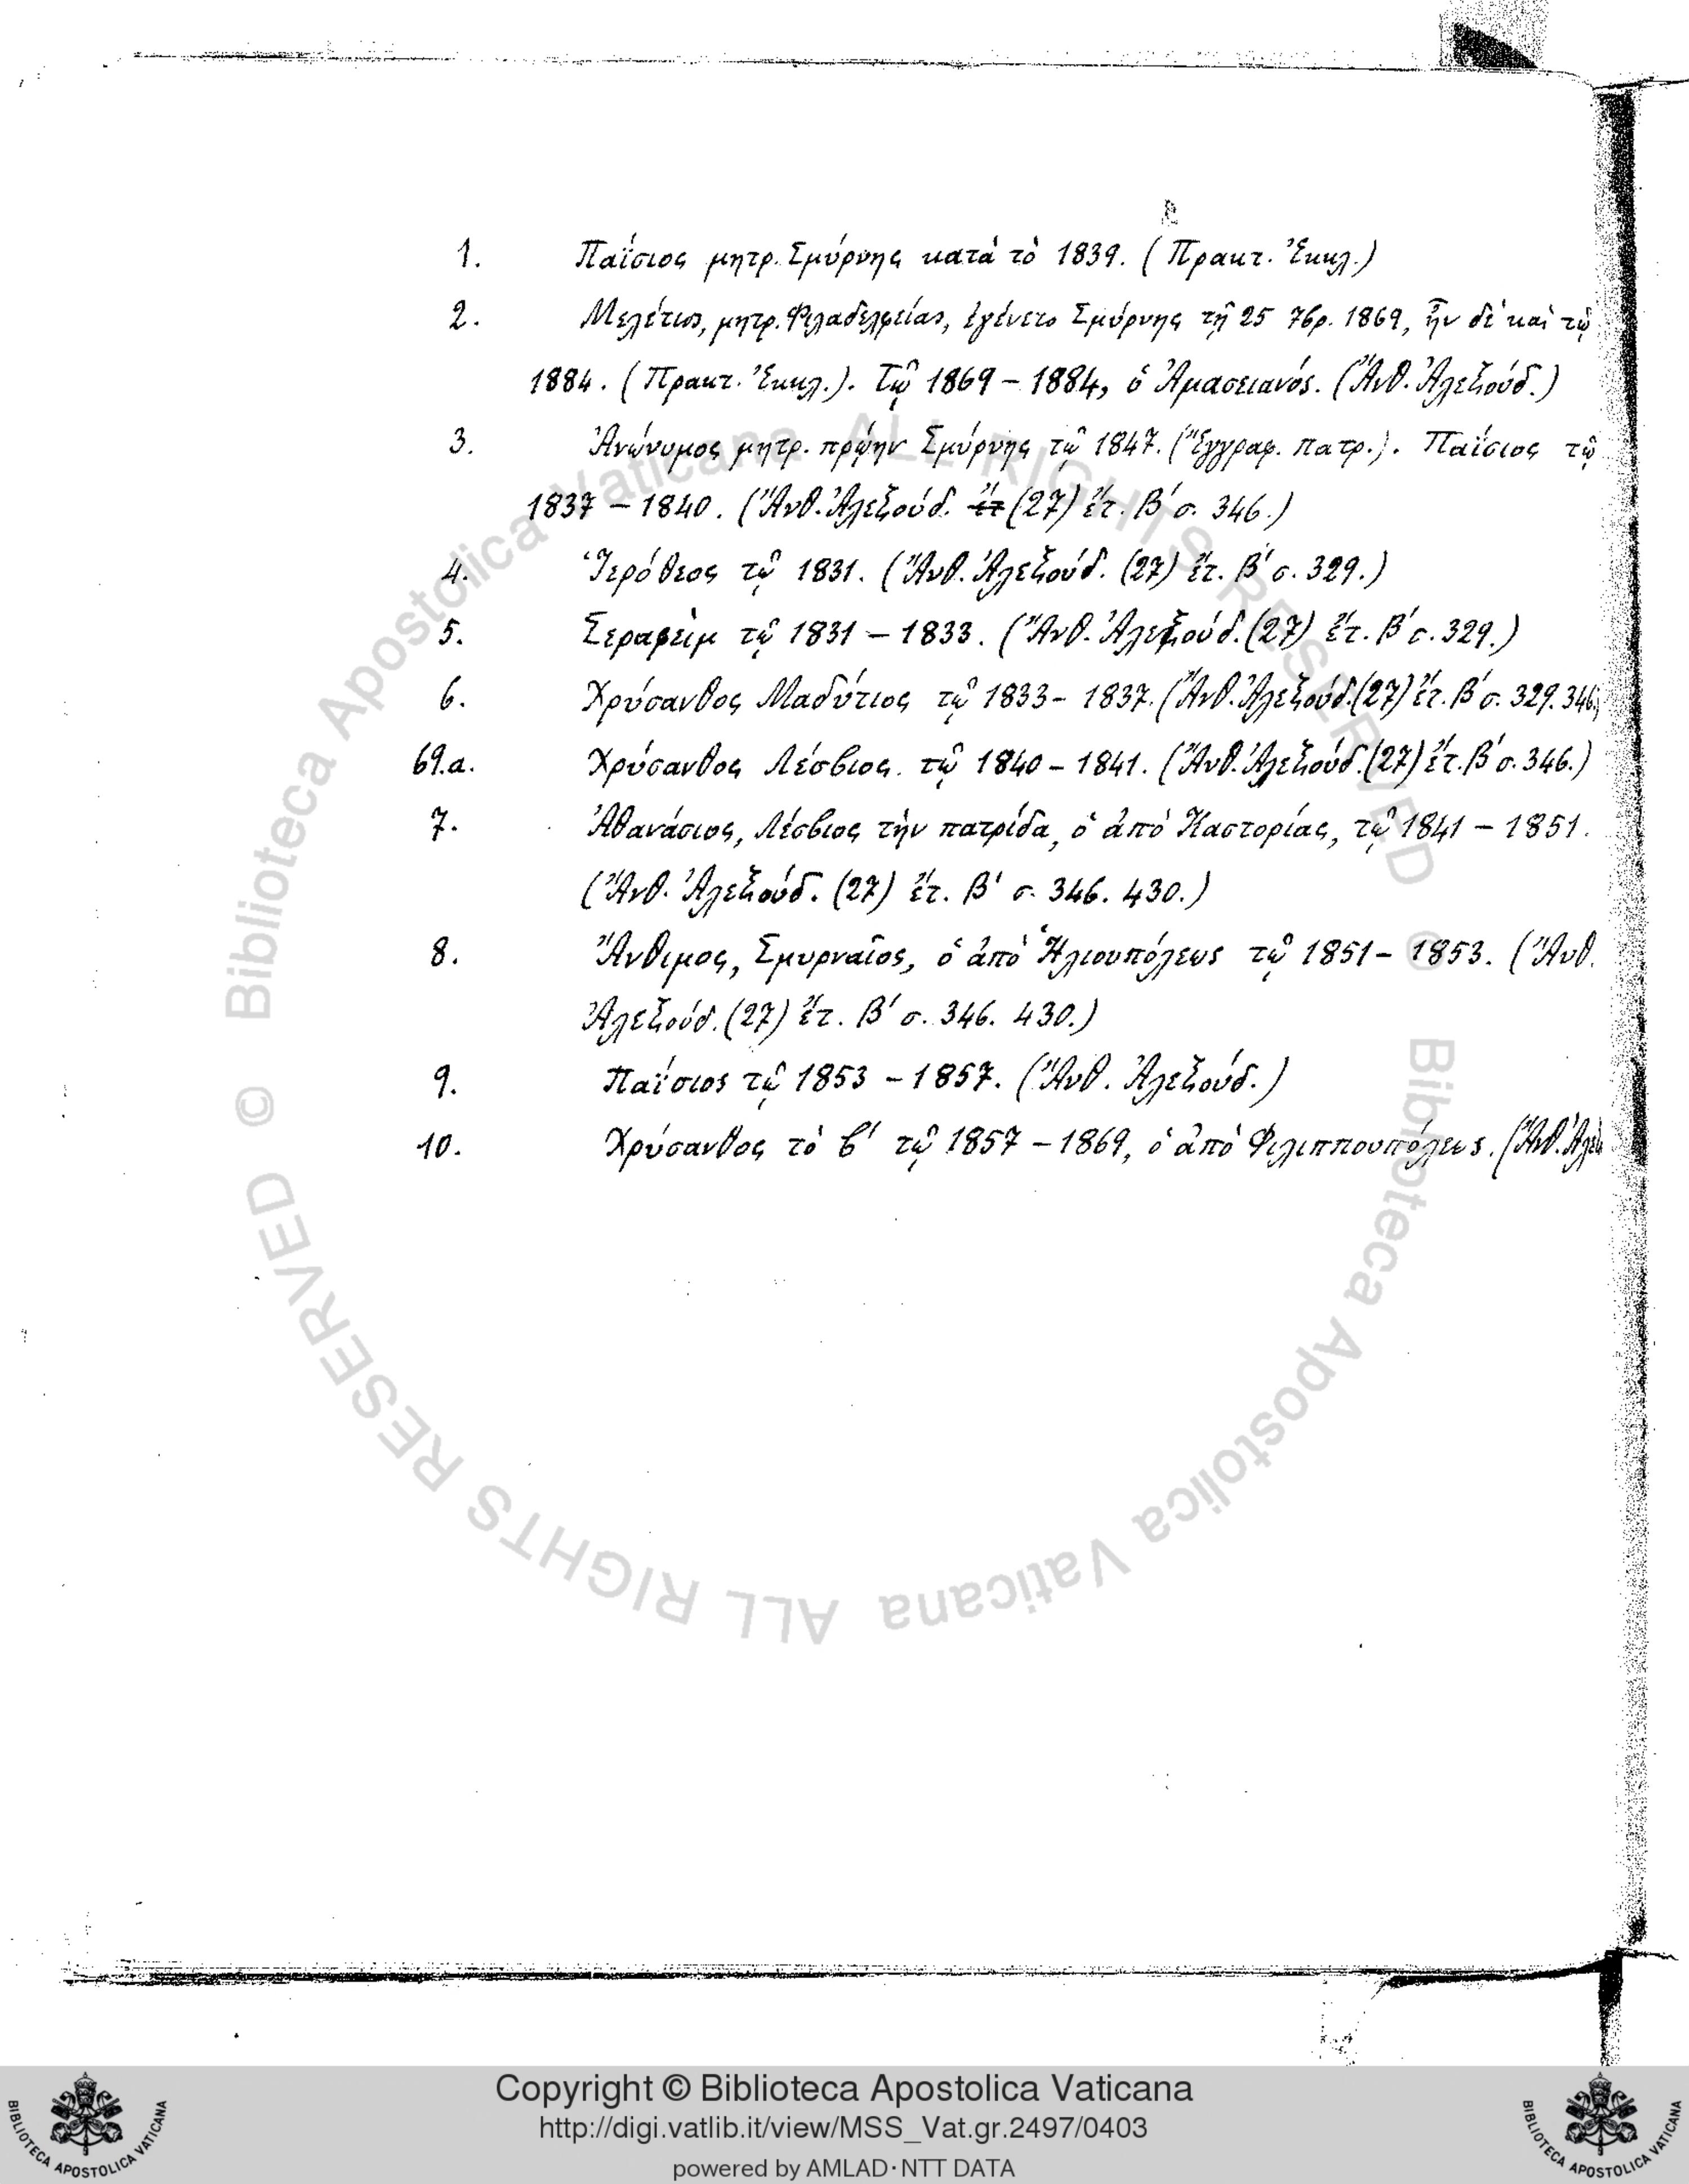 1. Παΐσιος μητρ. Σμύρνης κατὰ τὸ 1839. (Πρακτ. Ἐκκλ.)
2. Μελέτιος, μητρ. Φιλαδελφείας, ἐγένετο Σμύρνης τῇ 25 7βρ. 1869, ἦν δὲ καὶ τῷ
1884. (Πρακτ. Ἐκκλ.). Τῷ 1869 – 1884, ὁ Ἀμασειανός. (Ἄνθ. Ἀλεξούδ.)
3. Ἀνώνυμος μητρ. πρῴην Σμύρνης τῷ 1847. (Ἔγγραφ. πατρ.). Παΐσιος τῷ
1837 – 1840. (Ἄνθ. Ἀλεξούδ. ἔτ (27) ἔτ. Β′ σ. 346.)
4. Ἱερόθεος τῷ 1831. (Ἄνθ. Ἀλεξούδ. (27) ἔτ. Β′ σ. 329.)
5. Σεραφεὶμ τῷ 1831 – 1833. (Ἄνθ. Ἀλεξούδ. (27) ἔτ. Β′ σ. 329.)
6. Χρύσανθος Μαδύτιος τῷ 1833 – 1837. (Ἄνθ. Ἀλεξούδ. (27) ἔτ. Β′ σ. 329. 346.)
69.a. Χρύσανθος Λέσβιος τῷ 1840 – 1841. (Ἄνθ. Ἀλεξούδ. (27) ἔτ. Β′ σ. 346.)
7. Ἀθανάσιος, Λέσβιος τὴν πατρίδα, ὁ ἀπὸ Καστορίας, τῷ 1841 – 1851.
(Ἄνθ. Ἀλεξούδ. (27) ἔτ. Β′ σ. 346. 430.)
8. Ἄνθιμος, Σμυρναῖος, ὁ ἀπὸ Ἡλιουπόλεως τῷ 1851 – 1853. (Ἄνθ.
Ἀλεξούδ. (27) ἔτ. Β′ σ. 346. 430.)
9. Παΐσιος τῷ 1853 – 1857. (Ἄνθ. Ἀλεξούδ.)
10. Χρύσανθος τὸ β′ τῷ 1857 – 1869, ὁ ἀπὸ Φιλιππουπόλεως. (Ἄνθ. Ἀλεξ
© Biblioteca Apostolica Vaticana ALL RIGHTS RESERVED
© Biblioteca Apostolica Vaticana ALL RIGHTS RESERVED
Copyright © Biblioteca Apostolica Vaticana
http://digi.vatlib.it/view/MSS_Vat.gr.2497/0403
powered by AMLAD·NTT DATA
BIBLIOTECA APOSTOLICA VATICANA
BIBLIOTECA APOSTOLICA VATICANA